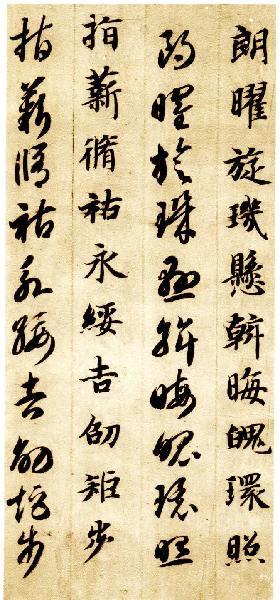 朗曜旋璣懸斡晦魄環照
朗曜旋璣懸斡晦魄環照
指薪脩祜永綏吉劭矩步
指薪脩祜永綏吉劭矩步